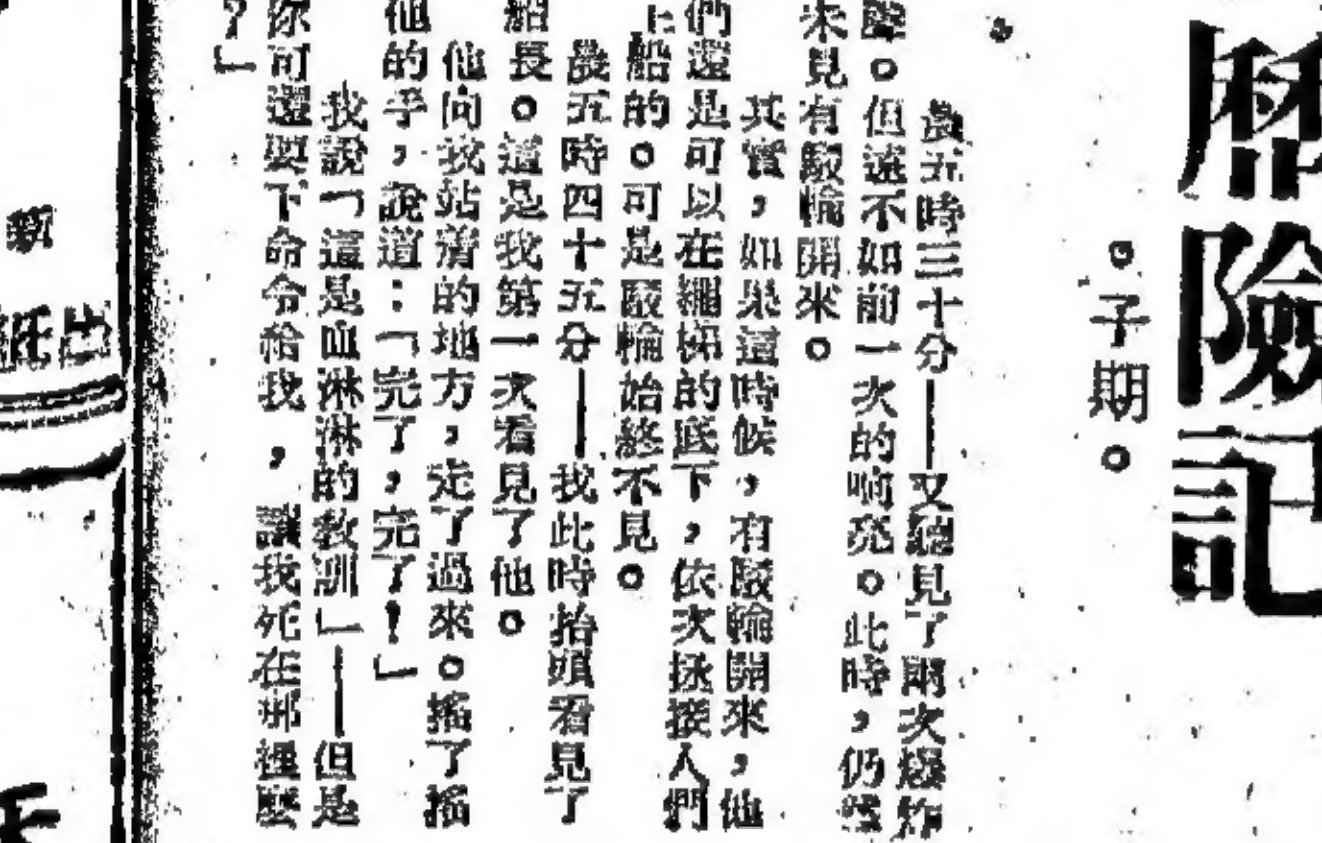 歷險記
。子期。
晨五時三十分——又聽見了兩次爆炸
聲。但遠不如前一次的响亮。此時,仍然
未見有駁輪開來。
其實,如果這時候,有駁輪開來,他
們還是可以在繩梯的底下,依次拯接人們
上船的。可是駁輪始終不見。
晨五時四十五分——我此時抬頭看見了
船長。這是我第一次看見了他。
他向我站着的地方,走了過來。搖了搖
他的手,說道:「完了,完了!」
我說「這是血淋淋的教訓」——但是
你可還要下命令給我,讓我死在那裡麼
?」
新